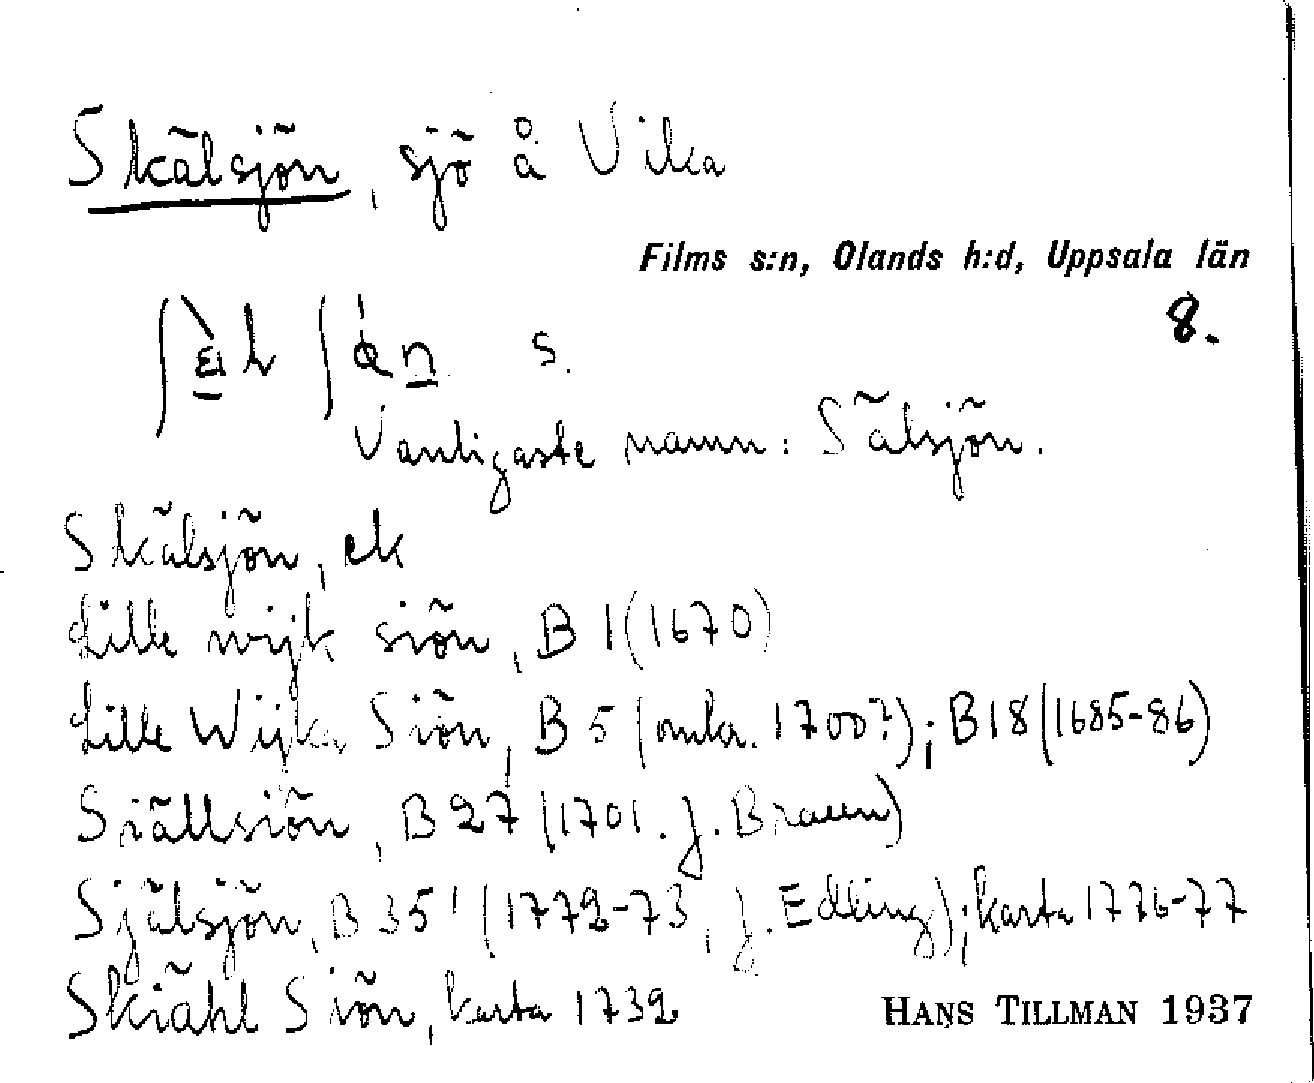 Skälsjön, sjö å Vika
Films s:n, Olands h:d, Uppsala län
8.
s.
Vanligaste namn: Sälsjön.
Skälsjön, ek
Lille wijk siön, B 1 (1670)
Lille Wijka Siön, B 5 (omkr. 1700?); B 18 (1685-86)
Siällsiön, B 27 (1701. J. Braun)
Själsjön, B 35' (1772-73, J. Edling); karta 1776-77
Skiähl Siön, karta 1732
HANS TILLMAN 1937